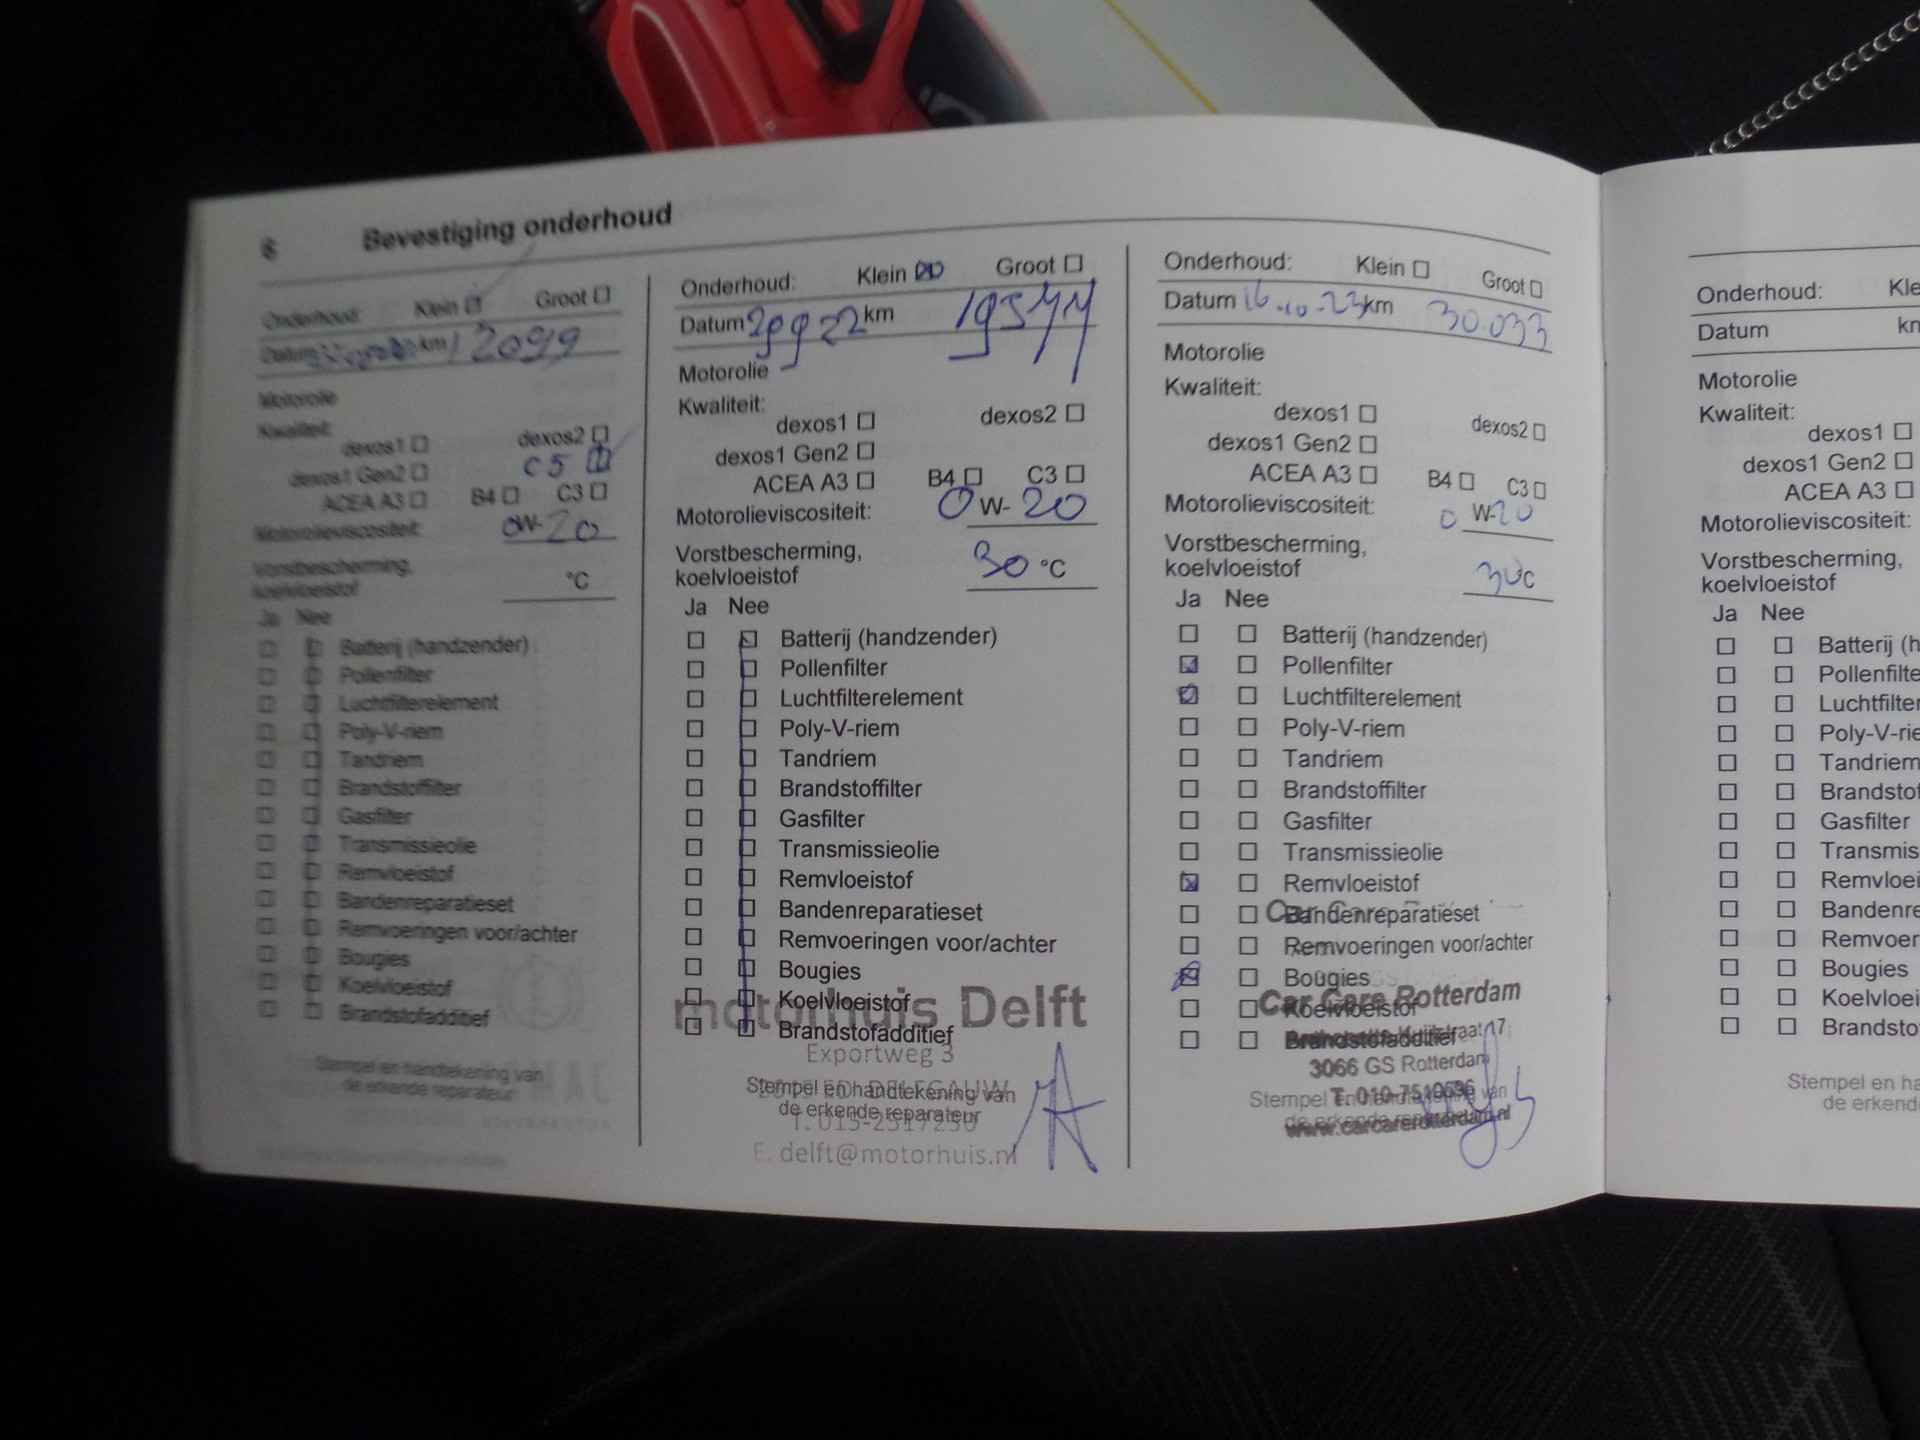 6 Bevestiging onderhoud
Onderhoud: Klein Groot
Datum km 12099
Motorolie
Kwaliteit:
dexos1 dexos2
dexos1 Gen2 C5
ACEA A3 B4 C3
Motorolieviscositeit: 0W-20
Vorstbescherming,
koelvloeistof °C
Ja Nee
Batterij (handzender)
Pollenfilter
Luchtfilterelement
Poly-V-riem
Tandriem
Brandstoffilter
Gasfilter
Transmissieolie
Remvloeistof
Bandenreparatieset
Remvoeringen voor/achter
Bougies
Koelvloeistof
Brandstofadditief
Stempel en handtekening van
de erkende reparateur
Onderhoud: Klein Groot
Datum 29 9 22 km 19544
Motorolie
Kwaliteit:
dexos1 dexos2
dexos1 Gen2
ACEA A3 B4 C3
Motorolieviscositeit: 0 W- 20
Vorstbescherming,
koelvloeistof 30 °C
Ja Nee
Batterij (handzender)
Pollenfilter
Luchtfilterelement
Poly-V-riem
Tandriem
Brandstoffilter
Gasfilter
Transmissieolie
Remvloeistof
Bandenreparatieset
Remvoeringen voor/achter
Bougies
Koelvloeistof
motorhuis Delft
Brandstofadditief
Exportweg 3
Stempel en handtekening van
de erkende reparateur
E. delft@motorhuis.nl
Onderhoud: Klein Groot
Datum 16-10-23 km 30.033
Motorolie
Kwaliteit:
dexos1 dexos2
dexos1 Gen2
ACEA A3 B4 C3
Motorolieviscositeit: 0 W-20
Vorstbescherming,
koelvloeistof 30°C
Ja Nee
Batterij (handzender)
Pollenfilter
Luchtfilterelement
Poly-V-riem
Tandriem
Brandstoffilter
Gasfilter
Transmissieolie
Remvloeistof
Bandenreparatieset
Remvoeringen voor/achter
Bougies
Car Care Rotterdam
Koelvloeistof
Brandstofadditief
3066 GS Rotterdam
Stempel en handtekening van
de erkende reparateur
www.carcarerotterdam.nl
Onderhoud: Kle
Datum km
Motorolie
Kwaliteit:
dexos1
dexos1 Gen2
ACEA A3
Motorolieviscositeit:
Vorstbescherming,
koelvloeistof
Ja Nee
Batterij (h
Pollenfilte
Luchtfilter
Poly-V-rie
Tandriem
Brandstof
Gasfilter
Transmis
Remvloei
Bandenre
Remvoer
Bougies
Koelvloei
Brandsto
Stempel en ha
de erkend